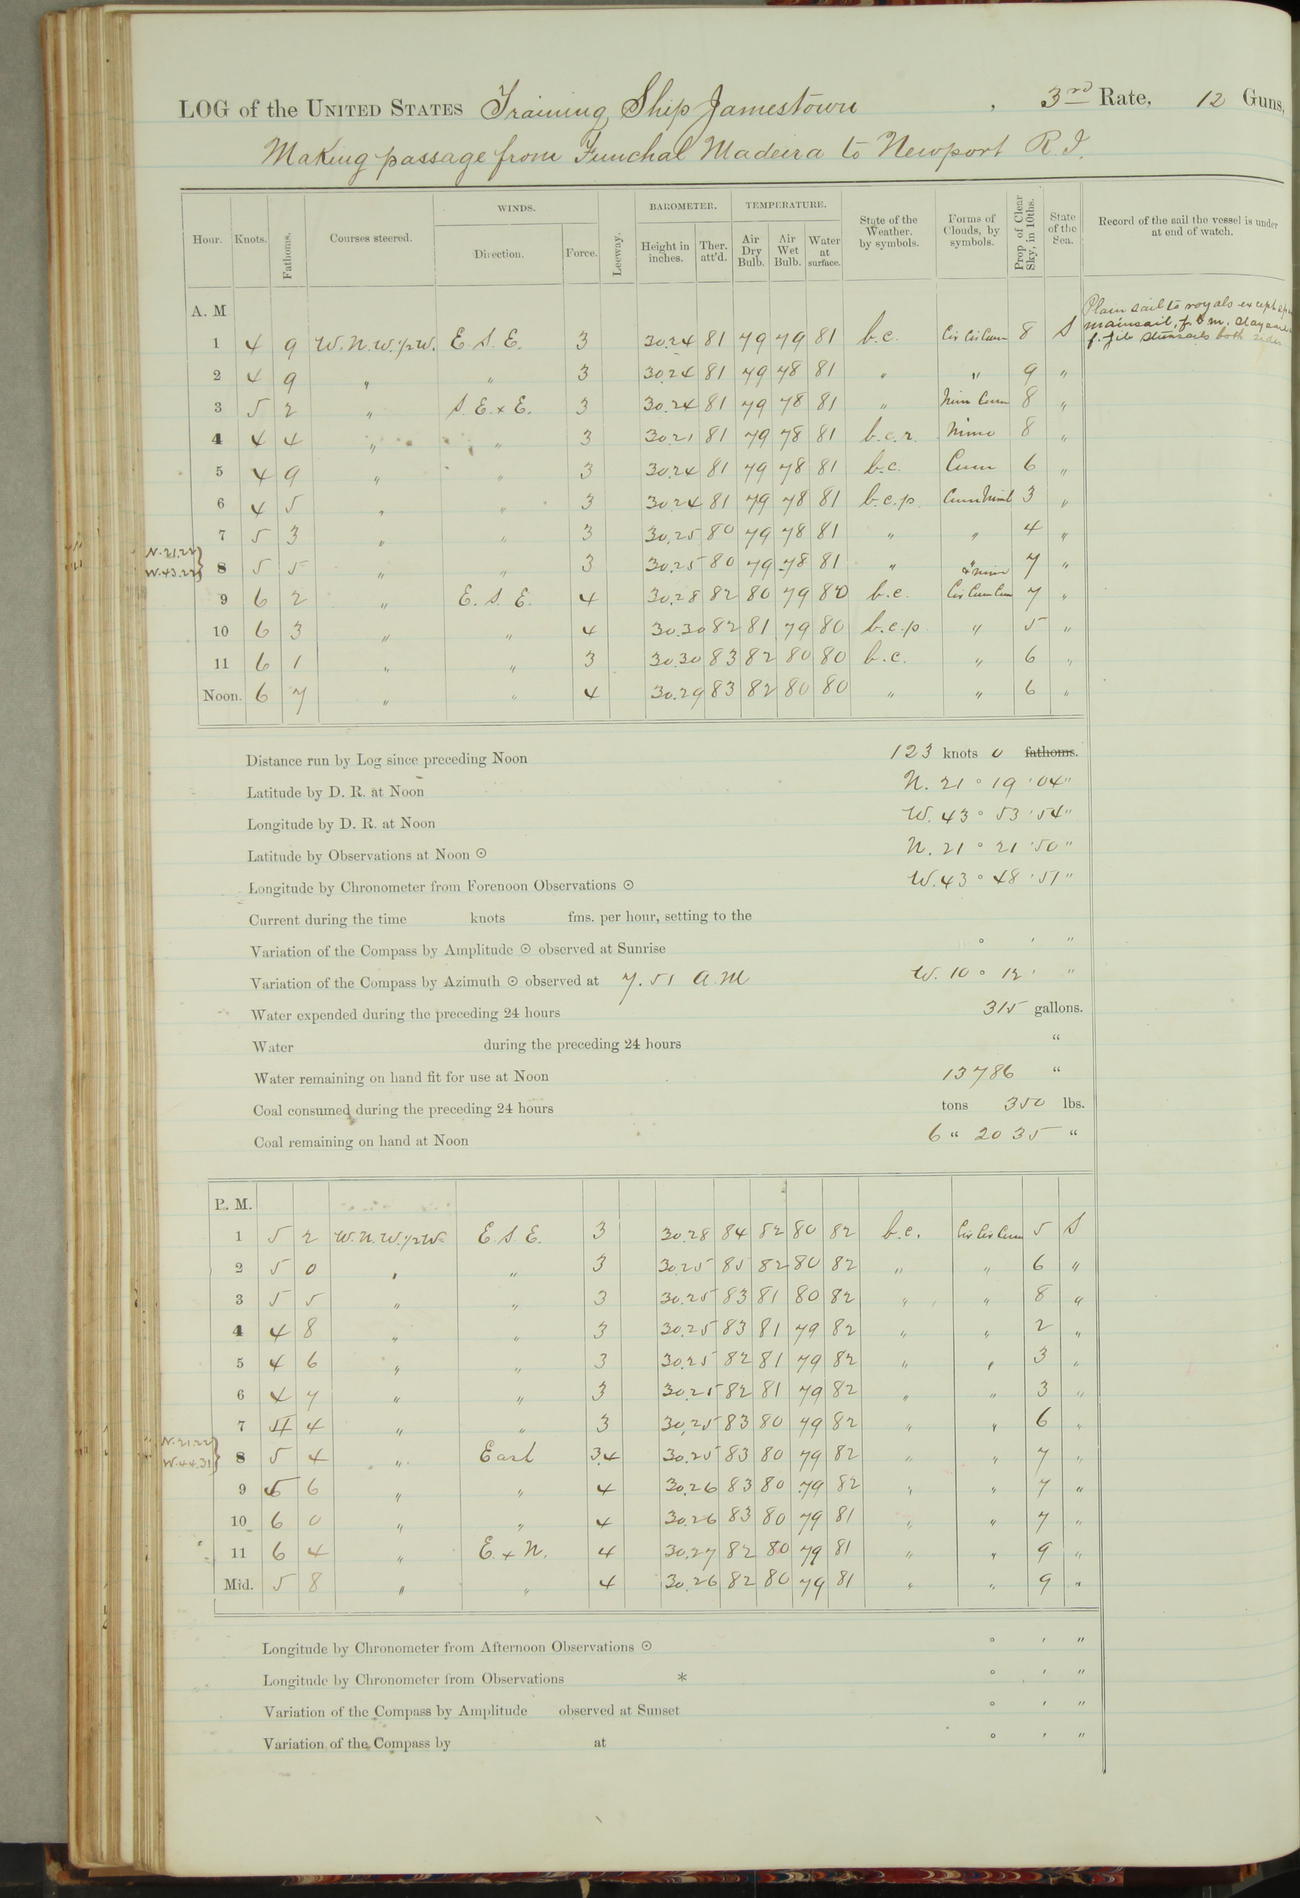 LOG of the UNITED STATES Training Ship Jamestown , 3rd Rate, 12 Guns,
Making passage from Funchal Madeira to Newport R.I.
Hour. Knots. Fathoms. Courses steered. WINDS. Direction. Force. Leeway. BAROMETER. Height in inches. Ther. att'd. TEMPERATURE. Air Dry Bulb. Air Wet Bulb. Water at surface. State of the Weather. by symbols. Forms of Clouds, by symbols. Prop of Clear Sky, in 10ths. State of the Sea. Record of the sail the vessel is under at end of watch.
A. M
Plain sail to royals except
mainsail, f. & m.
f. stunsails both sides
1 4 9 W.N.W.½W. E.S.E. 3 30.24 81 79 79 81 b.c. Cir Cir Cum 8 S
2 4 9 " " 3 30.24 81 79 78 81 " " 9 "
3 5 2 " S.E.xE. 3 30.24 81 79 78 81 " Nim Cum 8 "
4 4 4 " " 3 30.21 81 79 78 81 b.c.r. Nim 8 "
5 4 9 " " 3 30.24 81 79 78 81 b.c. Cum 6 "
6 4 5 " " 3 30.24 81 79 78 81 b.c.p. Cum Nimb 3 "
7 5 3 " " 3 30.25 80 79 78 81 " " 4 "
N.21.22
W.43.22} 8 5 5 " " 3 30.25 80 79 78 81 " " nim 7 "
9 6 2 " E.S.E. 4 30.28 82 80 79 80 b.c. Cir Cum Cum 7 "
10 6 3 " " 4 30.30 82 81 79 80 b.c.p " 5 "
11 6 1 " " 3 30.30 83 82 80 80 b.c. " 6 "
Noon. 6 7 " " 4 30.29 83 82 80 80 " " 6 "
Distance run by Log since preceding Noon 123 knots 0 fathoms.
Latitude by D. R. at Noon N. 21 ° 19 ' 04 "
Longitude by D. R. at Noon W. 43 ° 53 ' 54 "
Latitude by Observations at Noon ☉ N. 21 ° 21 ' 50 "
Longitude by Chronometer from Forenoon Observations ☉ W. 43 ° 48 ' 51 "
Current during the time knots fms. per hour, setting to the
Variation of the Compass by Amplitude ☉ observed at Sunrise ° ' "
Variation of the Compass by Azimuth ☉ observed at 7.51 A.M W. 10 ° 12 ' "
Water expended during the preceding 24 hours 315 gallons.
Water during the preceding 24 hours "
Water remaining on hand fit for use at Noon 13786 "
Coal consumed during the preceding 24 hours tons 350 lbs.
Coal remaining on hand at Noon 6 " 2035 "
P. M.
1 5 2 W.N.W.½W. E.S.E. 3 30.28 84 82 80 82 b.c. Cir Cir Cum 5 S
2 5 0 " " 3 30.25 85 82 80 82 " " 6 "
3 5 5 " " 3 30.25 83 81 80 82 " " 8 "
4 4 8 " " 3 30.25 83 81 79 82 " " 2 "
5 4 6 " " 3 30.25 82 81 79 82 " " 3 "
6 4 7 " " 3 30.25 82 81 79 82 " " 3 "
7 4 4 " " 3 30.25 83 80 79 82 " " 6 "
N.21.22
W.44.31} 8 5 4 " East 3.4 30.25 83 80 79 82 " " 7 "
9 5 6 " " 4 30.26 83 80 79 82 " " 7 "
10 6 0 " " 4 30.26 83 80 79 81 " " 7 "
11 6 4 " E.xN. 4 30.27 82 80 79 81 " " 9 "
Mid. 5 8 " " 4 30.26 82 80 79 81 " " 9 "
Longitude by Chronometer from Afternoon Observations ☉ ° ' "
Longitude by Chronometer from Observations * ° ' "
Variation of the Compass by Amplitude observed at Sunset ° ' "
Variation of the Compass by at ° ' "